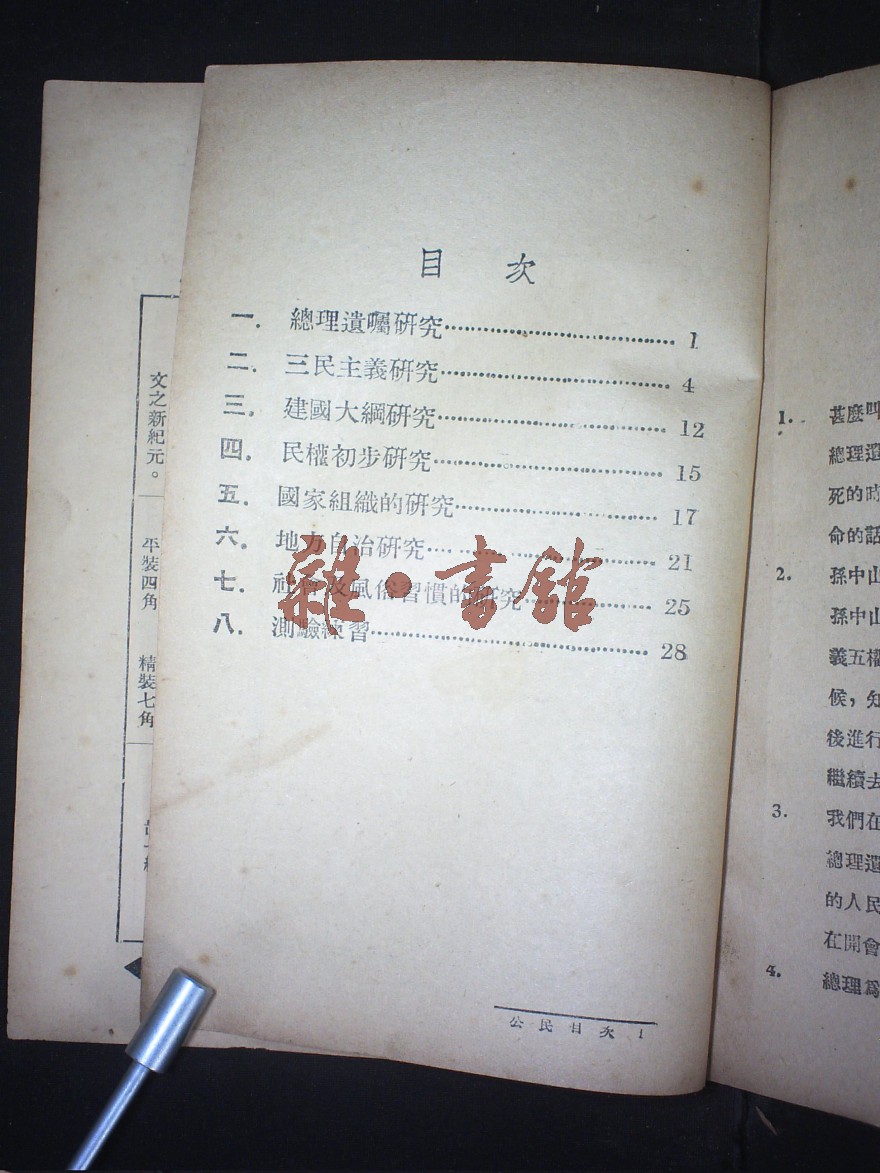 目 次
一. 總理遺囑研究 1
二. 三民主義研究 4
三. 建國大綱研究 12
四. 民權初步研究 15
五. 國家組織的研究 17
六. 地方自治研究 21
七. 社會及風俗習慣的研究 25
八. 測驗練習 28
雜·書館
公民目次 1
文之新紀元。
平裝四角 精裝七角
1. 甚麼叫
總理遺
死的時
命的話
2. 孫中山
孫中山
義五權
候，知
後進行
繼續去
3. 我們在
總理遺
的人民
在開會
4. 總理爲